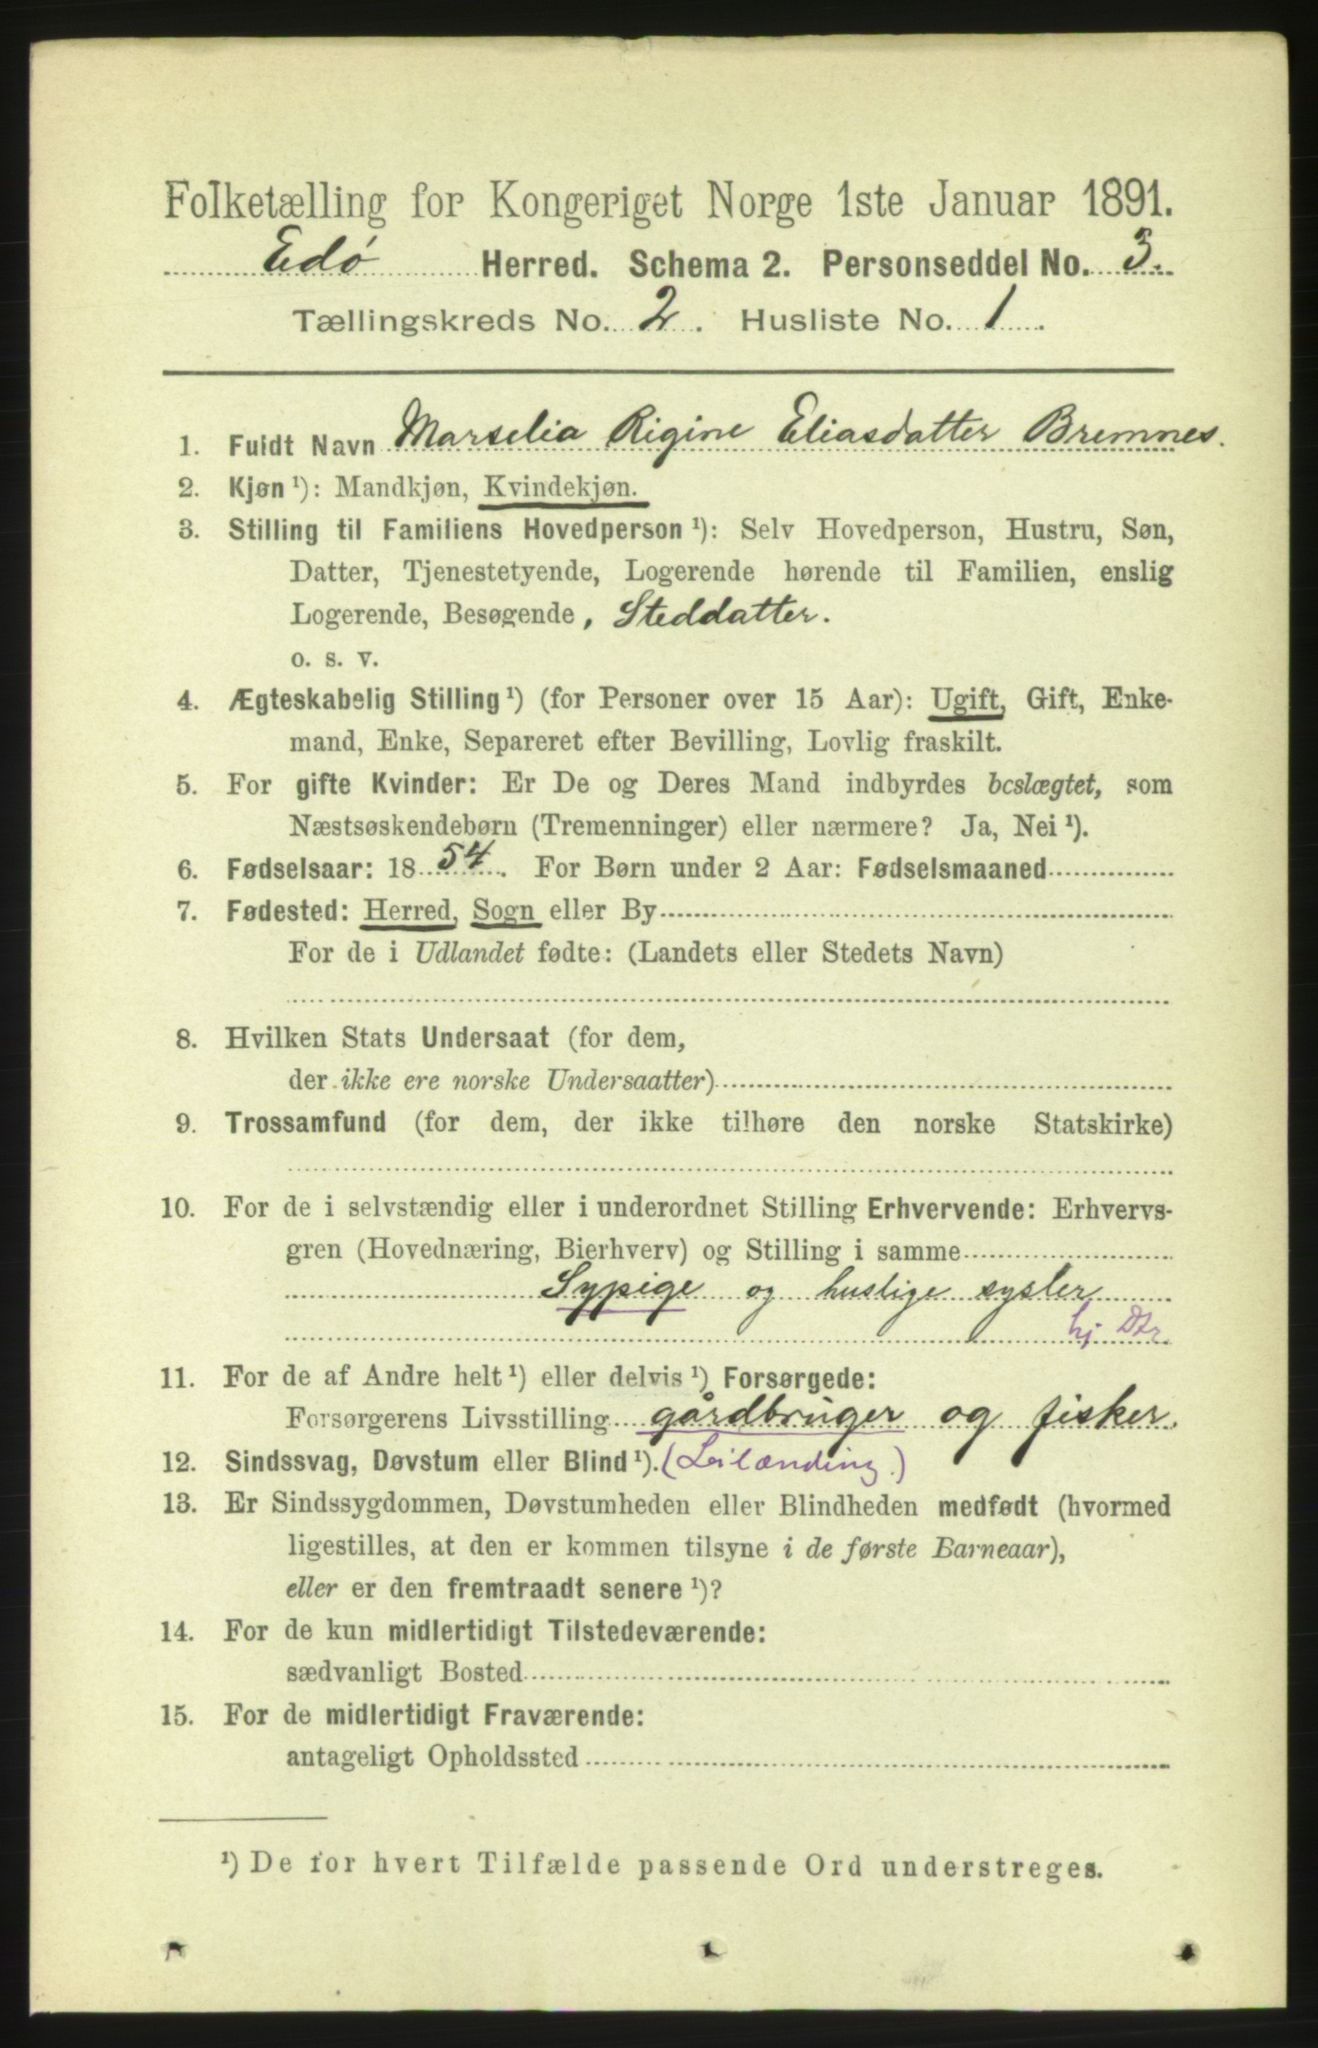 Folketælling for Kongeriget Norge 1ste Januar 1891.
Edø Herred. Schema 2. Personseddel No. 3.
Tællingskreds No. 2. Husliste No. 1.
1. Fuldt Navn Marselia Rigine Eliasdatter Bremnes.
2. Kjøn ¹): Mandkjøn, Kvindekjøn.
3. Stilling til Familiens Hovedperson ¹): Selv Hovedperson, Hustru, Søn,
Datter, Tjenestetyende, Logerende hørende til Familien, enslig
Logerende, Besøgende, Steddatter.
o. s. v.
4. Ægteskabelig Stilling ¹) (for Personer over 15 Aar): Ugift, Gift, Enke-
mand, Enke, Separeret efter Bevilling, Lovlig fraskilt.
5. For gifte Kvinder: Er De og Deres Mand indbyrdes beslægtet, som
Næstsøskendebørn (Tremenninger) eller nærmere? Ja, Nei ¹).
6. Fødselsaar: 1854. For Børn under 2 Aar: Fødselsmaaned
7. Fødested: Herred, Sogn eller By
For de i Udlandet fødte: (Landets eller Stedets Navn)
8. Hvilken Stats Undersaat (for dem,
der ikke ere norske Undersaatter)
9. Trossamfund (for dem, der ikke tilhøre den norske Statskirke)
10. For de i selvstændig eller i underordnet Stilling Erhvervende: Erhvervs-
gren (Hovednæring, Bierhverv) og Stilling i samme
Sypige og huslige sysler
hj Dtr
11. For de af Andre helt ¹) eller delvis ¹) Forsørgede:
Forsørgerens Livsstilling gårdbruger og fisker.
12. Sindssvag, Døvstum eller Blind ¹). (Leilænding.)
13. Er Sindssygdommen, Døvstumheden eller Blindheden medfødt (hvormed
ligestilles, at den er kommen tilsyne i de første Barneaar),
eller er den fremtraadt senere ¹)?
14. For de kun midlertidigt Tilstedeværende:
sædvanligt Bosted
15. For de midlertidigt Fraværende:
antageligt Opholdssted
¹) De for hvert Tilfælde passende Ord understreges.